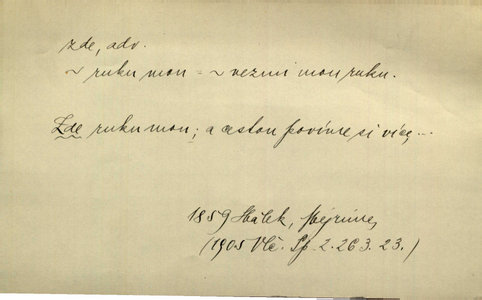 zde, adv.
~ ruku mou = ~ vezmi mou ruku.
Zde ruku mou; a cestou povíme si víc...
1859 Hálek, Mejrima,
(1905 Vlč. Sp. 2. 263. 23.)